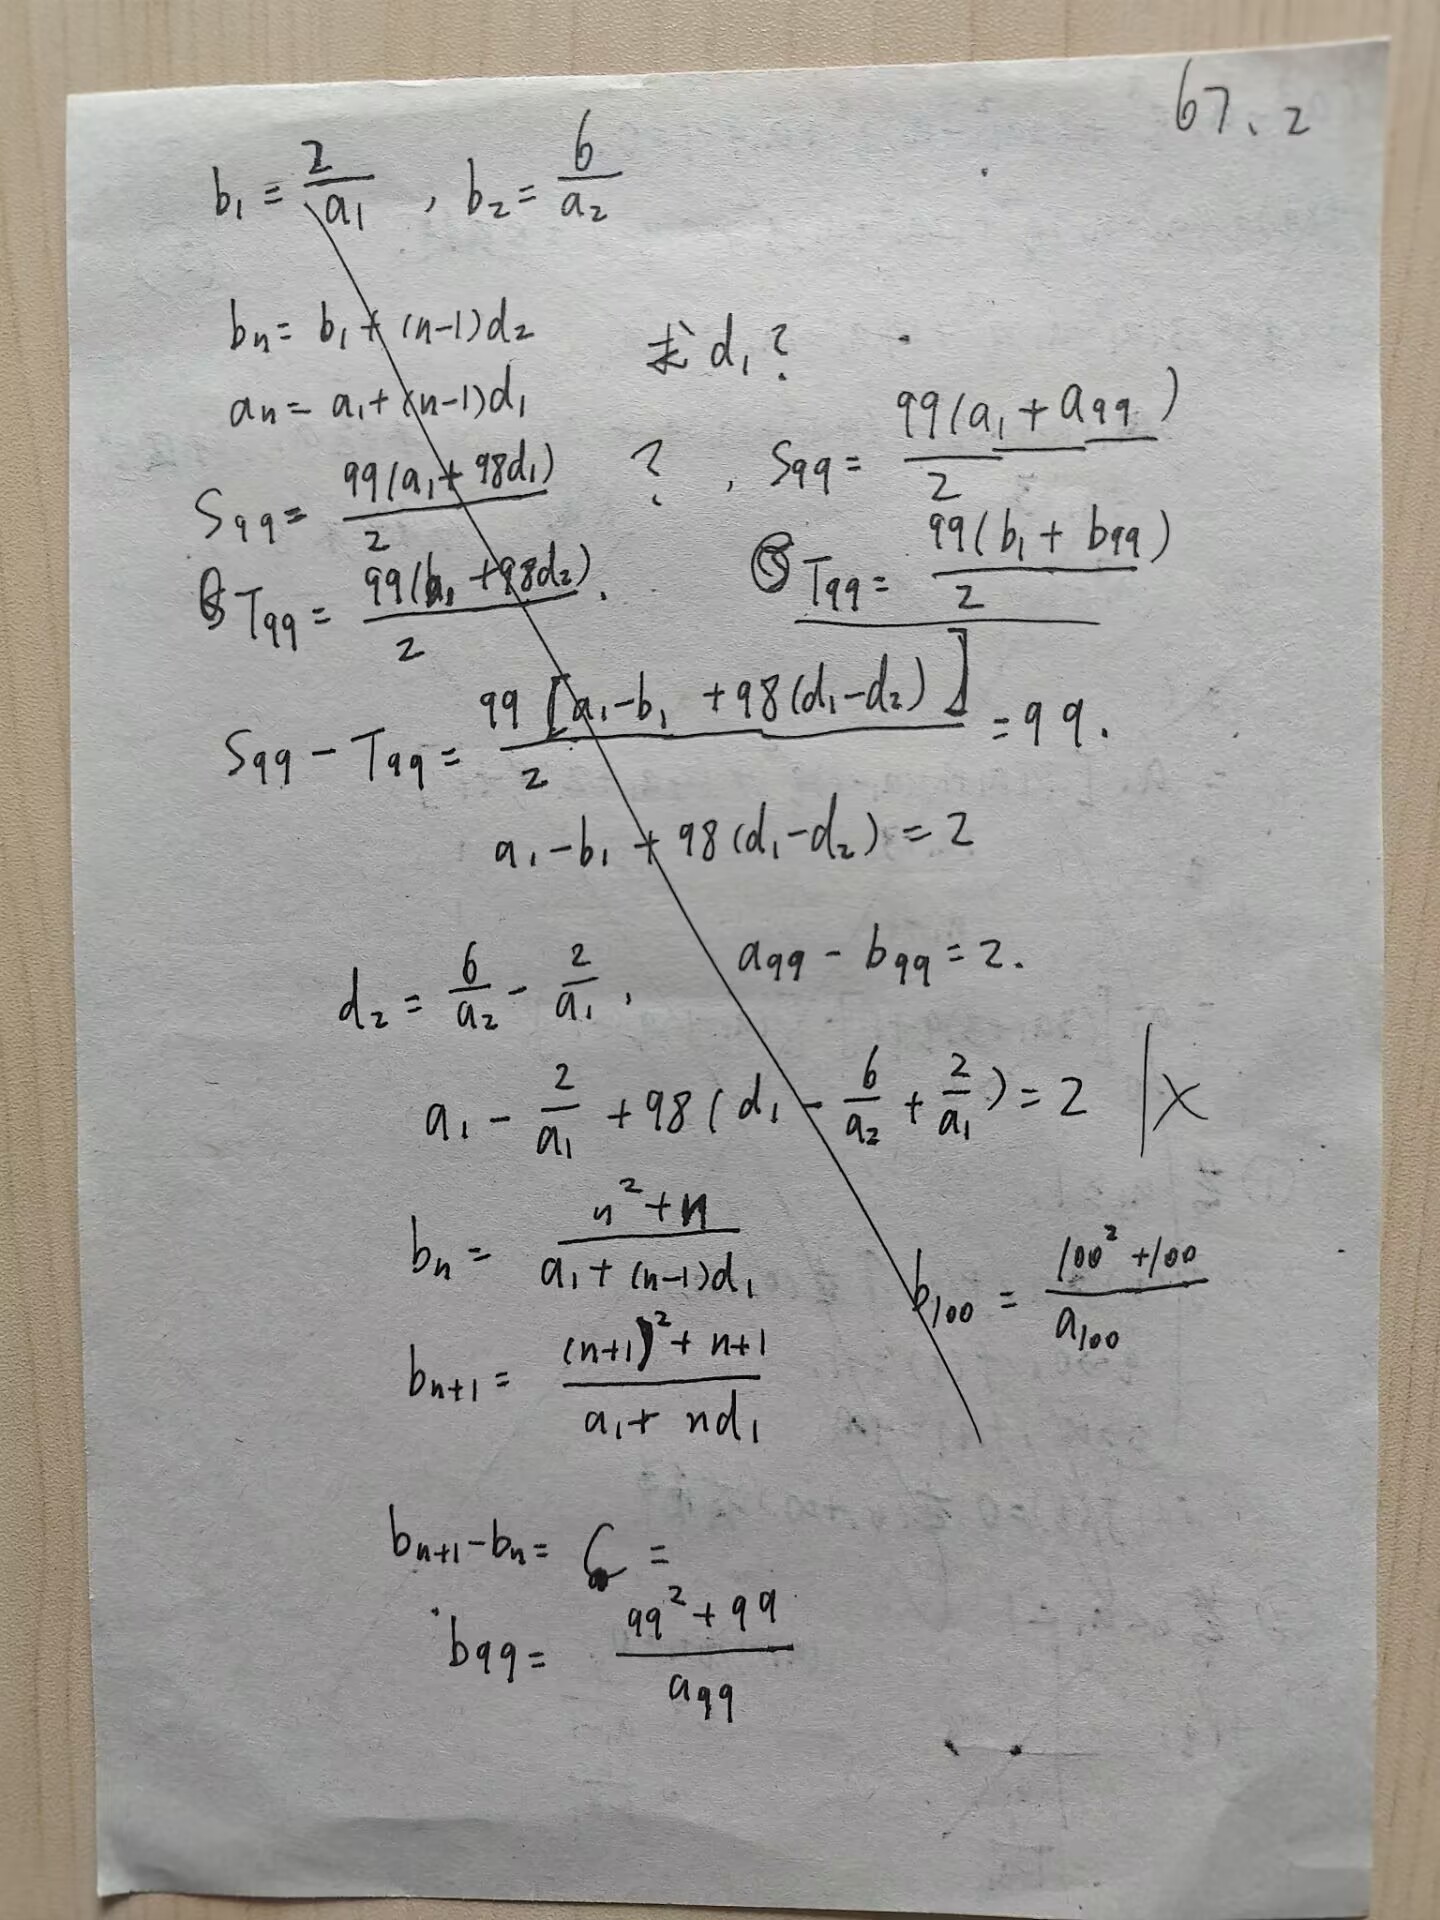 67、2
b₁ = 2/a₁ , b₂ = 6/a₂
bn = b₁ + (n-1)d₂
求 d₁ ?
an = a₁ + (n-1)d₁
S₉₉ = 99(a₁ + 98d₁)/2 ? , S₉₉ = 99(a₁ + a₉₉)/2
T₉₉ = 99(b₁ + 98d₂)/2 . T₉₉ = 99(b₁ + b₉₉)/2
S₉₉ - T₉₉ = 99[a₁ - b₁ + 98(d₁ - d₂)]/2 = 99.
a₁ - b₁ + 98(d₁ - d₂) = 2
a₉₉ - b₉₉ = 2.
d₂ = 6/a₂ - 2/a₁ ,
a₁ - 2/a₁ + 98(d₁ - 6/a₂ + 2/a₁) = 2 | ×
bn = (n² + n)/(a₁ + (n-1)d₁)
b₁₀₀ = (100² + 100)/a₁₀₀
bn+1 = ((n+1)² + n+1)/(a₁ + nd₁)
bn+1 - bn = C =
b₉₉ = (99² + 99)/a₉₉